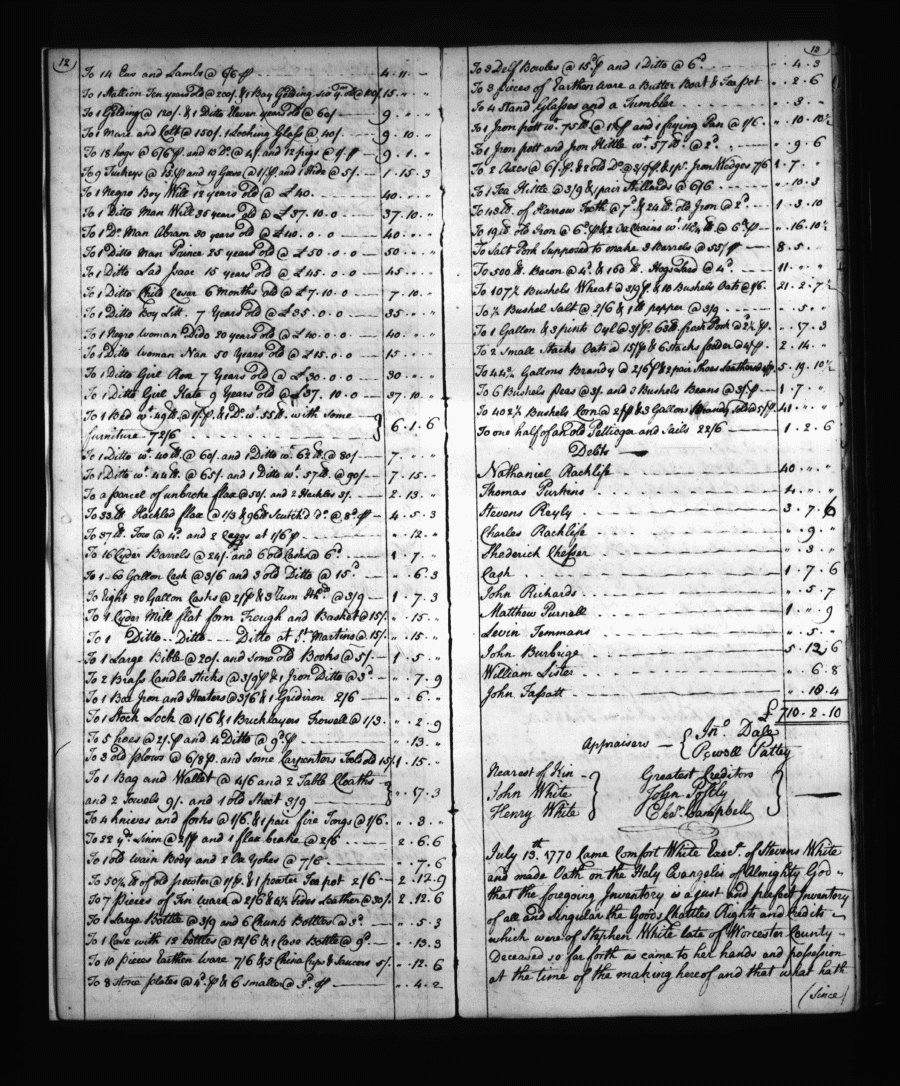 12
To 14 Ews and Lambs @ 6/6 p 4 . 11 . "
To 1 Stallion Ten years old @ 200/. & 1 Bay Gelding six yrs. old @ 100/. 15 . " . "
To 1 Gelding @ 120/. & 1 Ditto Eleven years old @ 60/ 9 . " . "
To 1 Mare and Colt @ 150/. 1 Looking Glass @ 40/. 9 . 10 . "
To 18 hogs @ 6/6 p. and 10 Do. @ 4/. and 12 pigs @ 1/. p 9 . 1 . "
To 9 Turkeys @ 15d. p and 19 Geese @ 1/. p and 1 Hide @ 5/. 1 . 15 . 3
To 1 Negro Boy Will 12 years old @ £40. 40 . " . "
To 1 Ditto Man Will 35 years old @ £37.10.0 37 . 10 . "
To 1 Do. Man Abram 30 years old @ £40.0.0 40 . " . "
To 1 Ditto man Prince 25 years old @ £50.0.0 50 . " . "
To 1 Ditto Lad Isaac 15 years old @ £45.0.0 45 . " . "
To 1 Ditto Child Cesar 6 Months old @ £7.10.0 7 . 10 . "
To 1 Ditto Boy Litt. 7 Years old @ £35.0.0 35 . " . "
To 1 Negro woman Dido 20 years old @ £40.0.0 40 . " . "
To 1 Ditto Woman Nan 50 Years old @ £15.0.0 15 . " . "
To 1 Ditto Girl Rose 7 Years old @ £30.0.0 30 . " . "
To 1 Ditto Girl Kate 9 Years old @ £37.10.0 37 . 10 . "
To 1 Bed wt. 49 lb. @ 1/. p. & 1 Do. w. 55 lb. with some
furniture 72/6 6 . 1 . 6
To 1 Ditto wt. 40 lb @ 60/. and 1 Ditto wt. 62 lb. @ 80/ 7 . " . "
To 1 Ditto wt. 44 lb. @ 65/. and 1 Ditto wt. 57 lb. @ 90/. 7 . 15 . "
To a parcel of unbroke flax @ 50/. and 2 Hackles 3/. 2 . 13 . "
To 33 lb Hackled flax @ 1/3 & 96 lb Scutch'd do. @ 8d. p 4 . 5 . 3
To 37 lb. Tow @ 4d. and 2 Caggs at 1/6 p. " . 12 . "
To 16 Cyder Barrels @ 24/. and 6 old Casks @ 6d. 1 . 7 . "
To 1-60 Gallon Cask @ 3/6 and 3 old Ditto @ 15d. " . 6 . 3
To Eight 30 Gallon Casks @ 2/. p & 3 Tum @ 3/9 1 . 7 . 3
To 1 Cyder Mill flat form Trough and Basket @ 15/. " . 15 . "
To 1 Ditto - Ditto - Ditto at St. Martins @ 15/. " . 15 . "
To 1 Large Bible @ 20/. and some old Books @ 5/. 1 . 5 . "
To 2 Brass Candle Sticks @ 3/9 p & 1 Iron Ditto @ 3d. " . 7 . 9
To 1 Box Iron and Heaters @ 3/6 & 1 Gridiron 2/6 " . 6 . "
To 1 Stock Lock @ 1/6 & 1 Bricklayers Trowell @ 1/3 " . 2 . 9
To 5 hoes @ 2/. p and 4 Ditto @ 9d. p " . 13 . "
To 3 old plows @ 6/8 p. and some Carpenters Tools old 15/. 1 . 15 . "
To 1 Bag and Wallet @ 4/6 and 2 Table Cloaths
and 2 Towels 9/. and 1 old Sheet 3/9 " . 17 . 3
To 4 knives and forks @ 1/6. & 1 pair fire Tongs @ 1/6. " . 3 . "
To 22 yds. Linen @ 2/. p and 1 flax brake @ 2/6 2 . 6 . 6
To 1 old Wain Body and 2 Ox Yokes @ 7/6 " . 7 . 6
To 50¼ lb of old pewter @ 1/. p & 1 pewter Tea pot 2/6 2 . 12 . 9
To 7 pieces of Tin Ware @ 2/6 & 4½ Sides Leather @ 30/. 2 . 12 . 6
To 1 Large Bottle @ 3/9 and 6 Chunk Bottles @ 3d. " . 5 . 3
To 1 Case with 12 bottles @ 12/6 & 1 Case Bottle @ 9d. " . 13 . 3
To 10 pieces Earthen Ware 7/6 & 5 China Cups & Saucers 5/. " . 12 . 6
To 8 stone plates @ 4d. p & 6 smaller @ 3d. p " . 4 . 2
12
To 3 Delf Bowles @ 15d. p and 1 Ditto @ 6d. " . 4 . 3
To 3 pieces of Earthen ware a Butter Boat & Tea pot " . 2 . 6
To 4 Stand Glasses and a Tumbler " . 3 . "
To 1 Iron pott wt. 75 lb @ and 1 frying Pan @ 1/6. " . 10 . 10½
To 1 Iron pott and Iron Kittle wt. 57 lb. @ 2d. " . 9 . 6
To 2 Axes @ 6/. p & 2 old Do. @ 3/. p & 1 pr. Iron Wedges 7/6 1 . 7 . "
To 1 Tea Kittle @ 3/9 & 1 pair Stillards @ 6/6 " . 10 . 3
To 43 lb. of Harrow Teeth @ 7d. & 24 lb. old Iron @ 2d. 1 . 3 . 10
To 19 lb. old Iron @ 6d. p & 2 Ox Chains wt. lb. @ 6d. p " . 16 . 10½
To Salt Pork Supposed to make 3 Barrels @ 55/ p 8 . 5 . "
To 500 lb. Bacon @ 4d. & 160 lb. Hogs Lard @ 4d. 11 . " . "
To 107½ Bushels Wheat @ 3/9 p & 10 Bushels Oats @ 1/6. 21 . 2 . 7½
To ½ Bushel Salt @ 2/6 & 1 lb pepper @ 3/9 " . 5 . "
To 1 Gallon & 3 pints Oyl @ 3/. p. 63 lb. fresh Pork @ 2½ p. " . 17 . 3
To 2 Small Stacks Oats @ 15/ p & 6 Stacks fodder @ 4/ p 2 . 14 . "
To Gallons Brandy @ 2/6 p & 2 pair Shoes Leathered 5 . 19 . 10½
To 6 Bushels Peas @ 3/. and 3 Bushels Beans @ 3/. p 1 . 7 . "
To 402½ Bushels Corn @ 2/ p & 3 Gallons Brandy sold @ 5/. p. 41 . " . "
To one half of an old Pettioger and Sails 22/6 1 . 2 . 6
Debts
Nathaniel Rackliffe 40 . " . "
Thomas Purkins 4 . " . "
Stevens Reyly 3 . 7 . 6
Charles Rackliffe " . 9 . "
Shederick Chesser " . 3 . "
Cash 1 . 7 . 6
John Richards " . 5 . 7
Matthew Purnell 1 . " . 9
Levin Temmans " . 5 . "
John Burbage 5 . 12 . 6
William Lister " . 6 . 8
John Fassatt " . 18 . 4
£ 710 . 2 . 10
Appraisers { Jno. Dale
Powell Pattey
Nearest of Kin Greatest Creditors
John White John Postly
Henry White Ebzr. Campbell
July 13th. 1770 Came Comfort White Exect. of Stevens White
and made Oath on the Holy Evangelis of Almighty God
that the foregoing Inventory is a just and perfect Inventory
of all and Singular the Goods Chattles Rights and Credits
which were of Stephen White late of Worcester County
Deceased so far forth as came to her hands and possession
at the time of the making hereof and that what hath
(since)